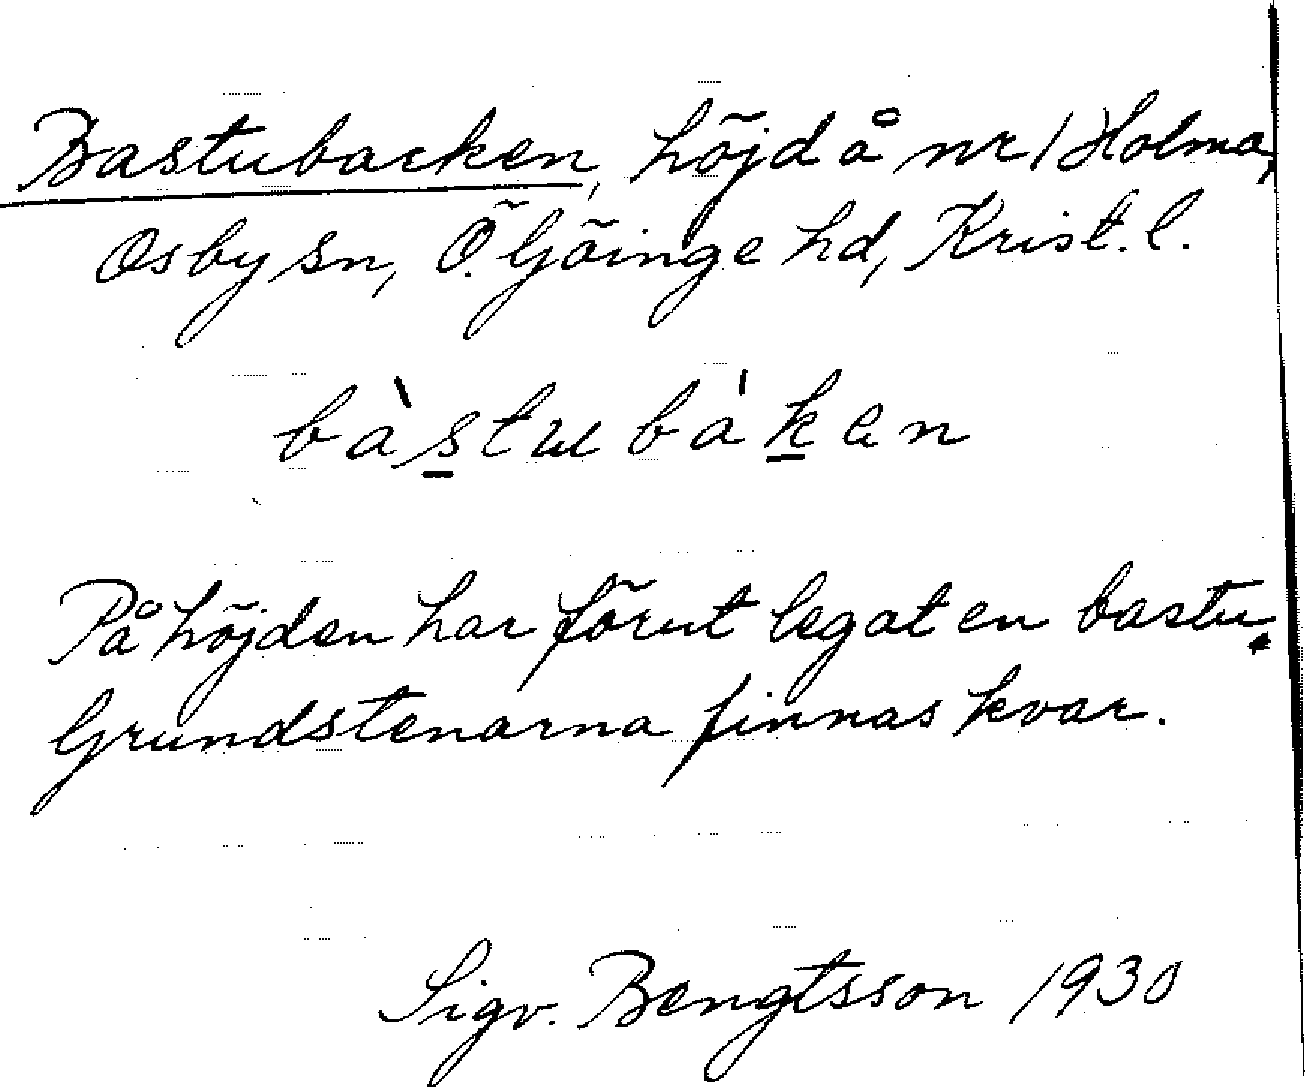 Bastubacken, höjd å nr 1 Holma,
Osby sn, Ö. Göinge hd, Krist. l.
bàstubàken
På höjden har förut legat en bastu.
Grundstenarna finnas kvar.
Sigv. Bengtsson 1930